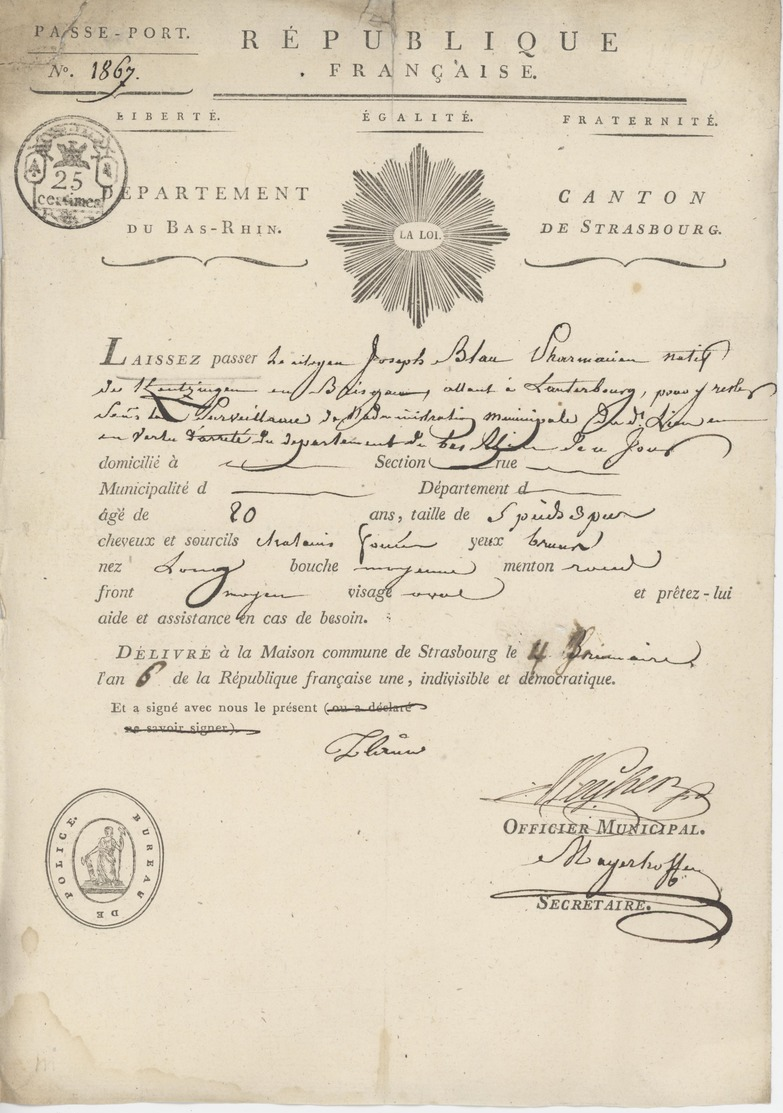 PASSE-PORT.
Nº. 1867.
RÉPUBLIQUE
FRANÇAISE.
LIBERTÉ. ÉGALITÉ. FRATERNITÉ.
25
centimes
DÉPARTEMENT
DU BAS-RHIN.
LA LOI.
CANTON
DE STRASBOURG.
LAISSEZ passer le citoyen Joseph Blau Pharmacien natif
de Kentzingen en Brisgau, allant à Lauterbourg, pour y rester
sous la Surveillance de l'administration municipale dud. Lieu en
en vertu d'arrêté du département du bas Rhin de ce Jour
domicilié à Section rue
Municipalité d Département d
âgé de 20 ans, taille de 5 pieds 3 pouces
cheveux et sourcils chatains yeux bruns
nez Long bouche moyenne menton rond
front moyen visage oval et prêtez-lui
aide et assistance en cas de besoin.
DÉLIVRÉ à la Maison commune de Strasbourg le 4 Brimaire
l'an 6 de la République française une, indivisible et démocratique.
Et a signé avec nous le présent (ou a déclaré
ne savoir signer).
OFFICIER MUNICIPAL.
Mayerhoffer
SECRÉTAIRE.
BUREAU DE POLICE.